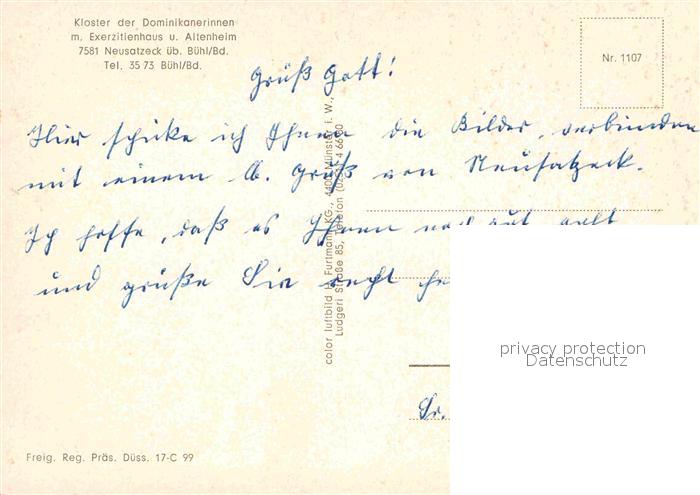 Kloster der Dominikanerinnen
m. Exerzitienhaus u. Altenheim
7581 Neusatzeck üb. Bühl/Bd.
Tel. 35 73 Bühl/Bd.
Nr. 1107
Grüß Gott!
Hier schicke ich Ihnen die Bilder, verbunden
mit einem lb. Gruß von Neusatzeck.
Ich hoffe, daß es Ihnen noch gut geht
und grüße Sie recht
Sr.
color luftbild H. Furtmann KG., 4400 Münster i. W.,
Ludgeri Straße 85, Telefon
privacy protection
Datenschutz
Freig. Reg. Präs. Düss. 17-C 99